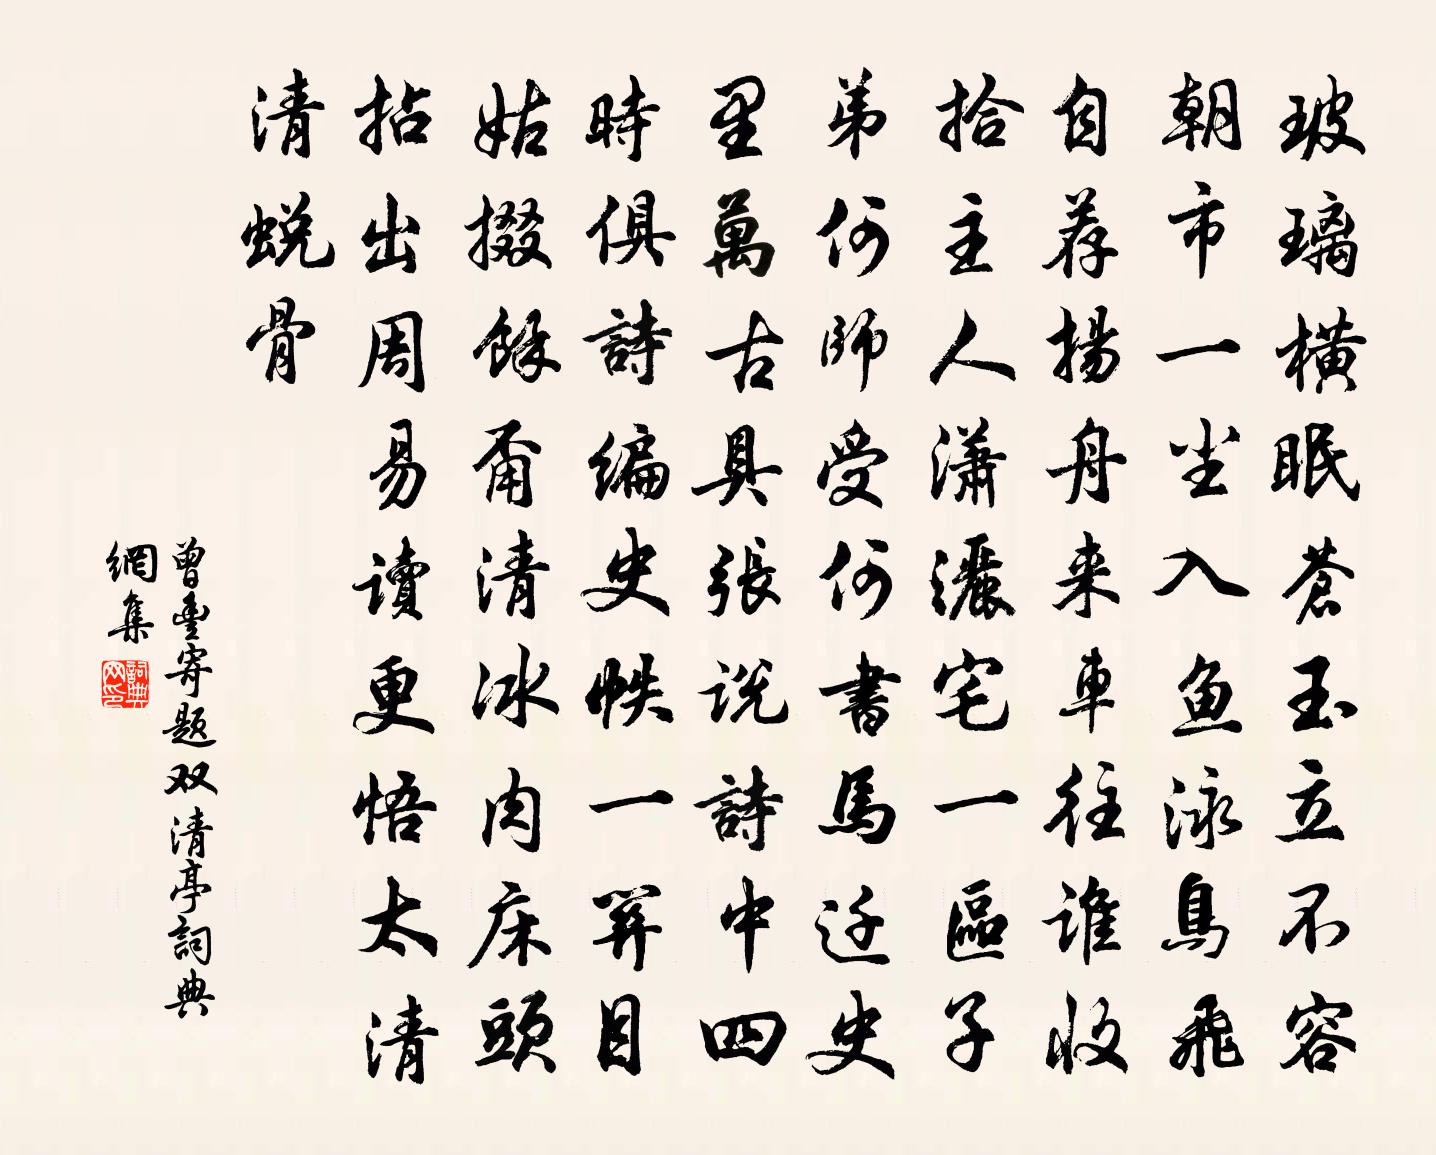 玻璃橫眠蒼玉立不容
朝市一尘入鱼泳鳥飛
自荐揚舟来車往誰收
拾主人瀟灑宅一區子
弟何师受何書馬迁史
里萬古具張说詩中四
時俱詩编史帙一笄目
姑掇餘甭清冰肉床頭
拈出周易读更悟太清
清蜕骨
曾豊寄题双清亭詞典
網集
詞典网印